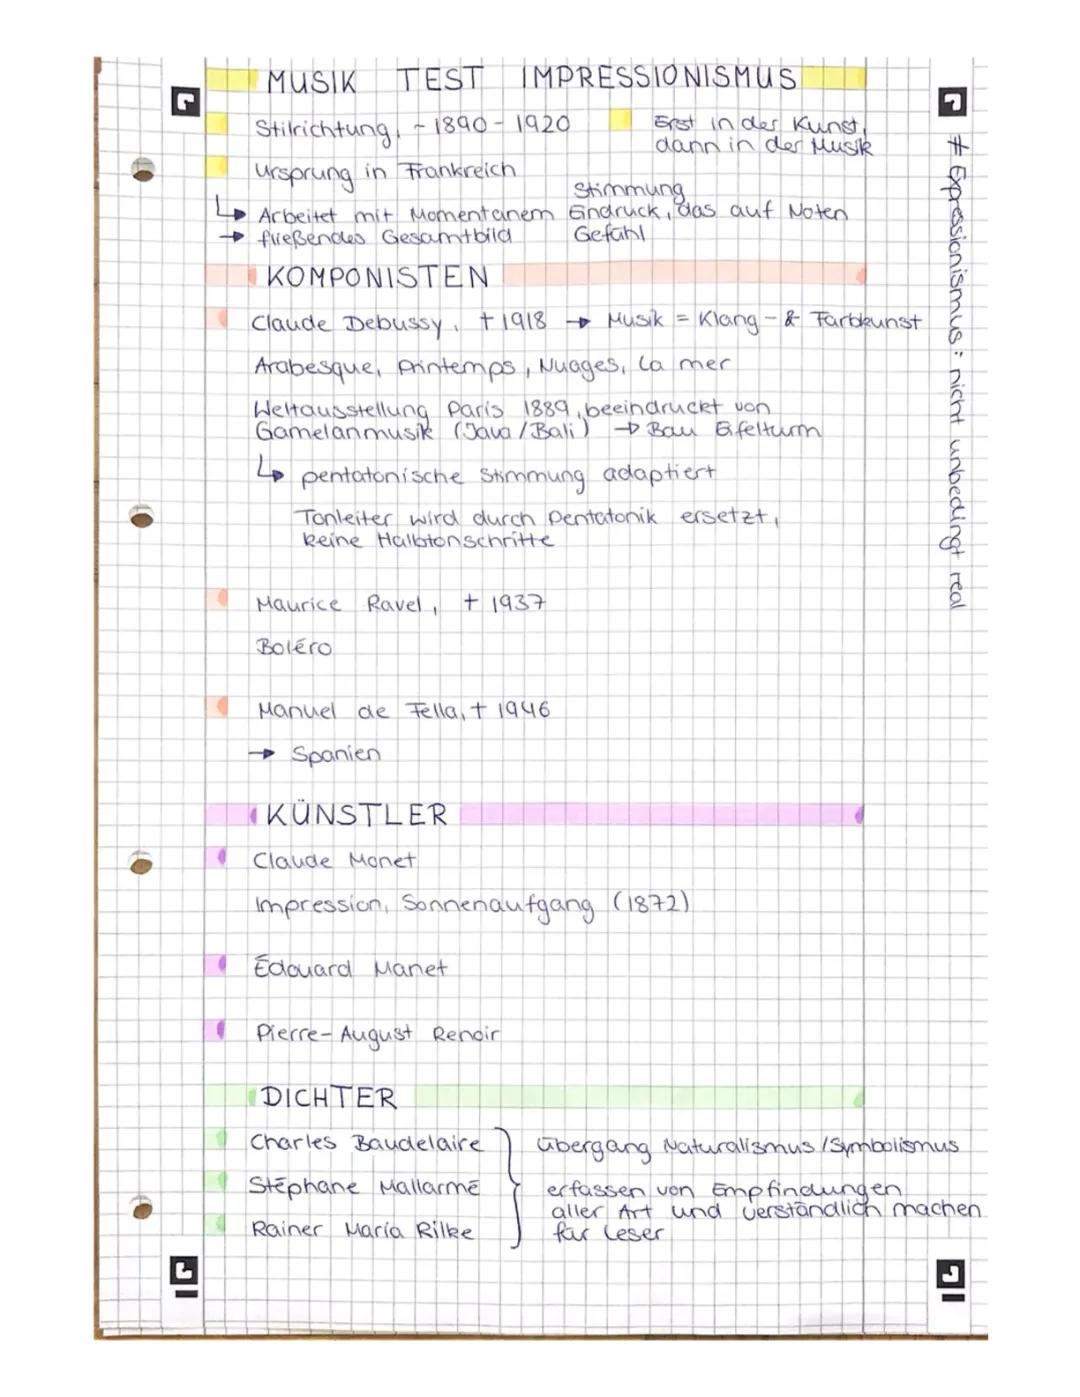 MUSIK TEST IMPRESSIONISMUS
Stilrichtung, ~1890 - 1920
Erst in der Kunst,
dann in der Musik
Ursprung in Frankreich
Stimmung
↳ Arbeitet mit Momentanem Eindruck, das auf Noten
→ fließendes Gesamtbild Gefühl
KOMPONISTEN
Claude Debussy, † 1918 → Musik = Klang- & Farbkunst
Arabesque, Printemps, Nuages, La mer
Weltausstellung Paris 1889, beeindruckt von
Gamelanmusik (Java / Bali) → Bau Eifelturm
↳ pentatonische Stimmung adaptiert
Tonleiter wird durch Pentatonik ersetzt,
keine Halbtonschritte
Maurice Ravel, † 1937
Boléro
Manuel de Fella, † 1946
→ Spanien
KÜNSTLER
Claude Monet
Impression, Sonnenaufgang (1872)
Édouard Manet
Pierre-August Renoir
DICHTER
Charles Baudelaire
Stéphane Mallarmé
Rainer Maria Rilke
Übergang Naturalismus / Symbolismus
erfassen von Empfindungen
aller Art und verständlich machen
für Leser
# Expressionismus: nicht unbedingt real